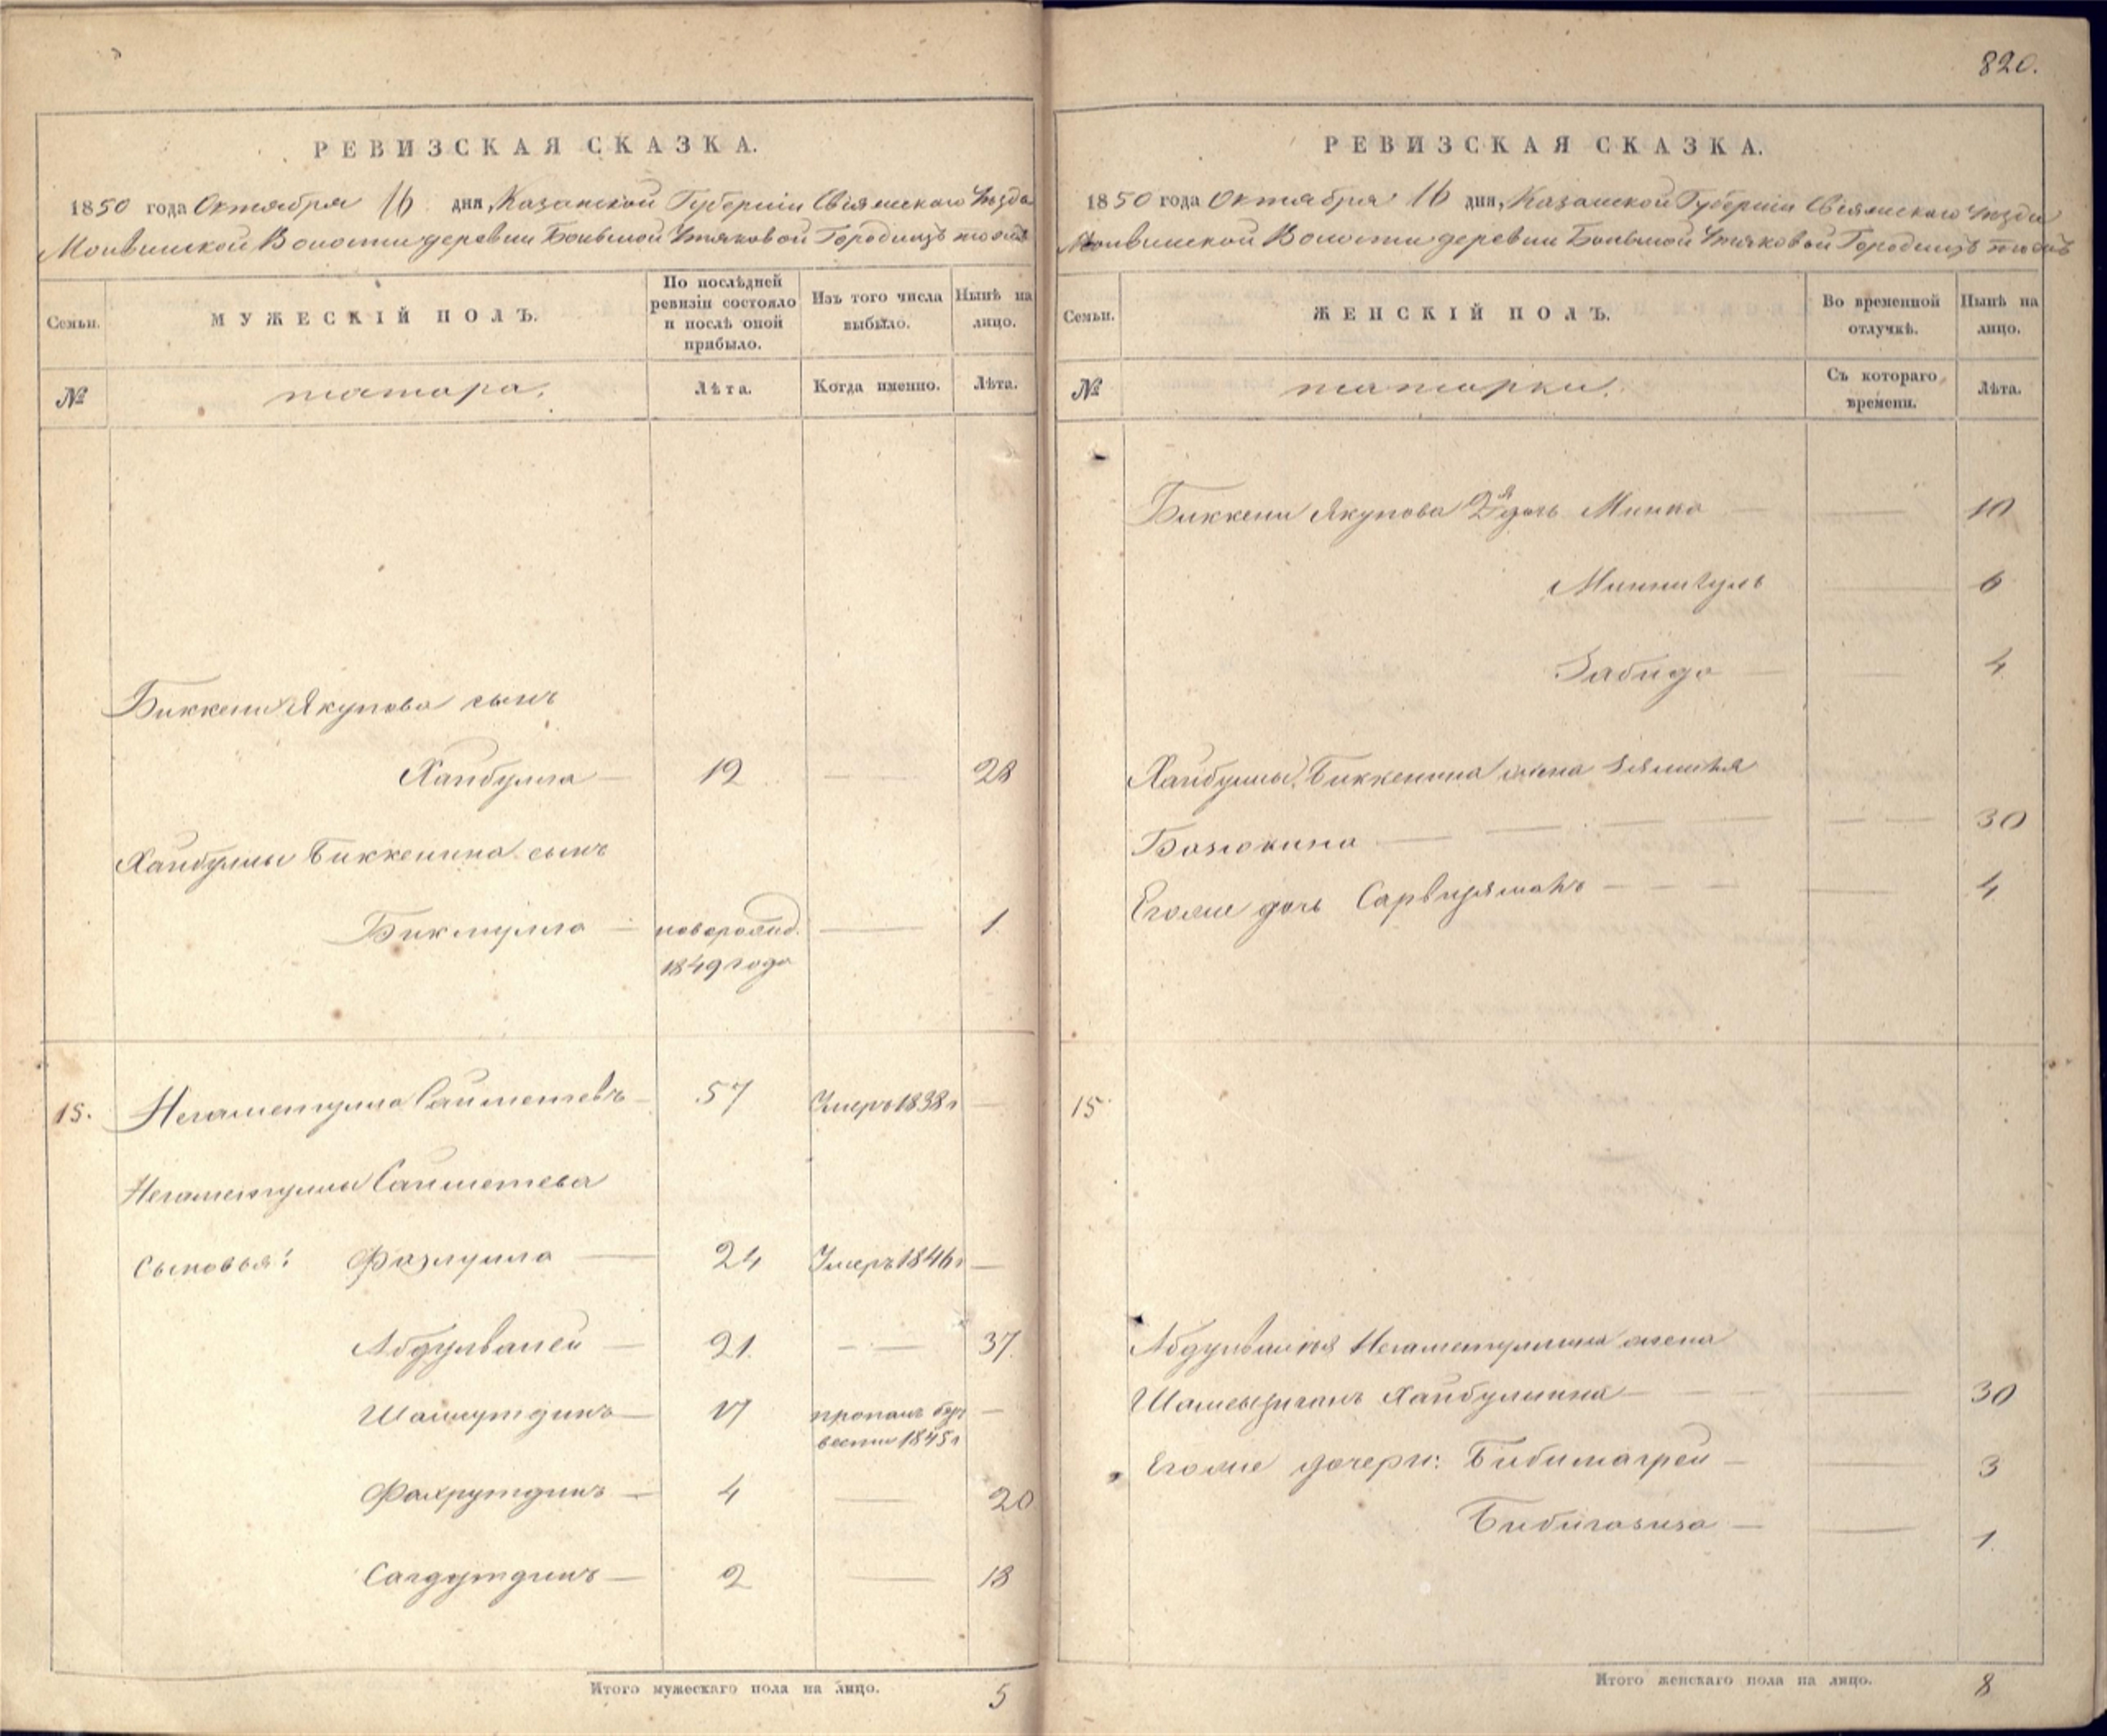 820.
РЕВИЗСКАЯ СКАЗКА.
1850 года Октября 16 дня, Казанской Губерніи Свіяжскаго Уѣзда
Молвинской Волости деревни Большой Утяковой Городищъ тожъ
Семьи.
МУЖЕСКІЙ ПОЛЪ.
По послѣдней ревизіи состояло и послѣ оной прибыло.
Изъ того числа выбыло.
Нынѣ на лицо.
№
татара.
Лѣта.
Когда именно.
Лѣта.
Биккени Якупова сынъ
Хайбулла — 12 — 28
Хайбуллы Биккенина сынъ
Бикмулла — новорожд. — 1.
1849 года
15. Негаметулла Сайметевъ — 57 Умеръ 1838 г —
Негаметуллы Сайметева
Сыновья: Фазлулла — 24 Умеръ 1846 г —
Абдулвалей — 21. — 37.
Шамсутдинъ — 17 пропалъ безъ —
вести 1845 г
Фахрутдинъ — 4 — 20
Сагдутдинъ — 2 — 18
Итого мужескаго пола на лицо. 5
РЕВИЗСКАЯ СКАЗКА.
1850 года Октября 16 дня, Казанской Губерніи Свіяжскаго Уѣзда
Молвинской Волости деревни Большой Утяковой Городищъ тожъ
Семьи.
ЖЕНСКІЙ ПОЛЪ.
Во временной отлучкѣ.
Нынѣ на лицо.
№
татарки.
Съ котораго времени.
Лѣта.
Биккени Якупова 2я дочь Минка — 10
Миннигуль — 6
Забида — 4
Хайбуллы Биккенина жена
Базюкина — 30
Егоже дочь — 4
15.
Абдулвалея Негаметуллина жена
Хайбуллина — 30
Егоже дочери: — 3
— 1.
Итого женскаго пола на лицо. 8